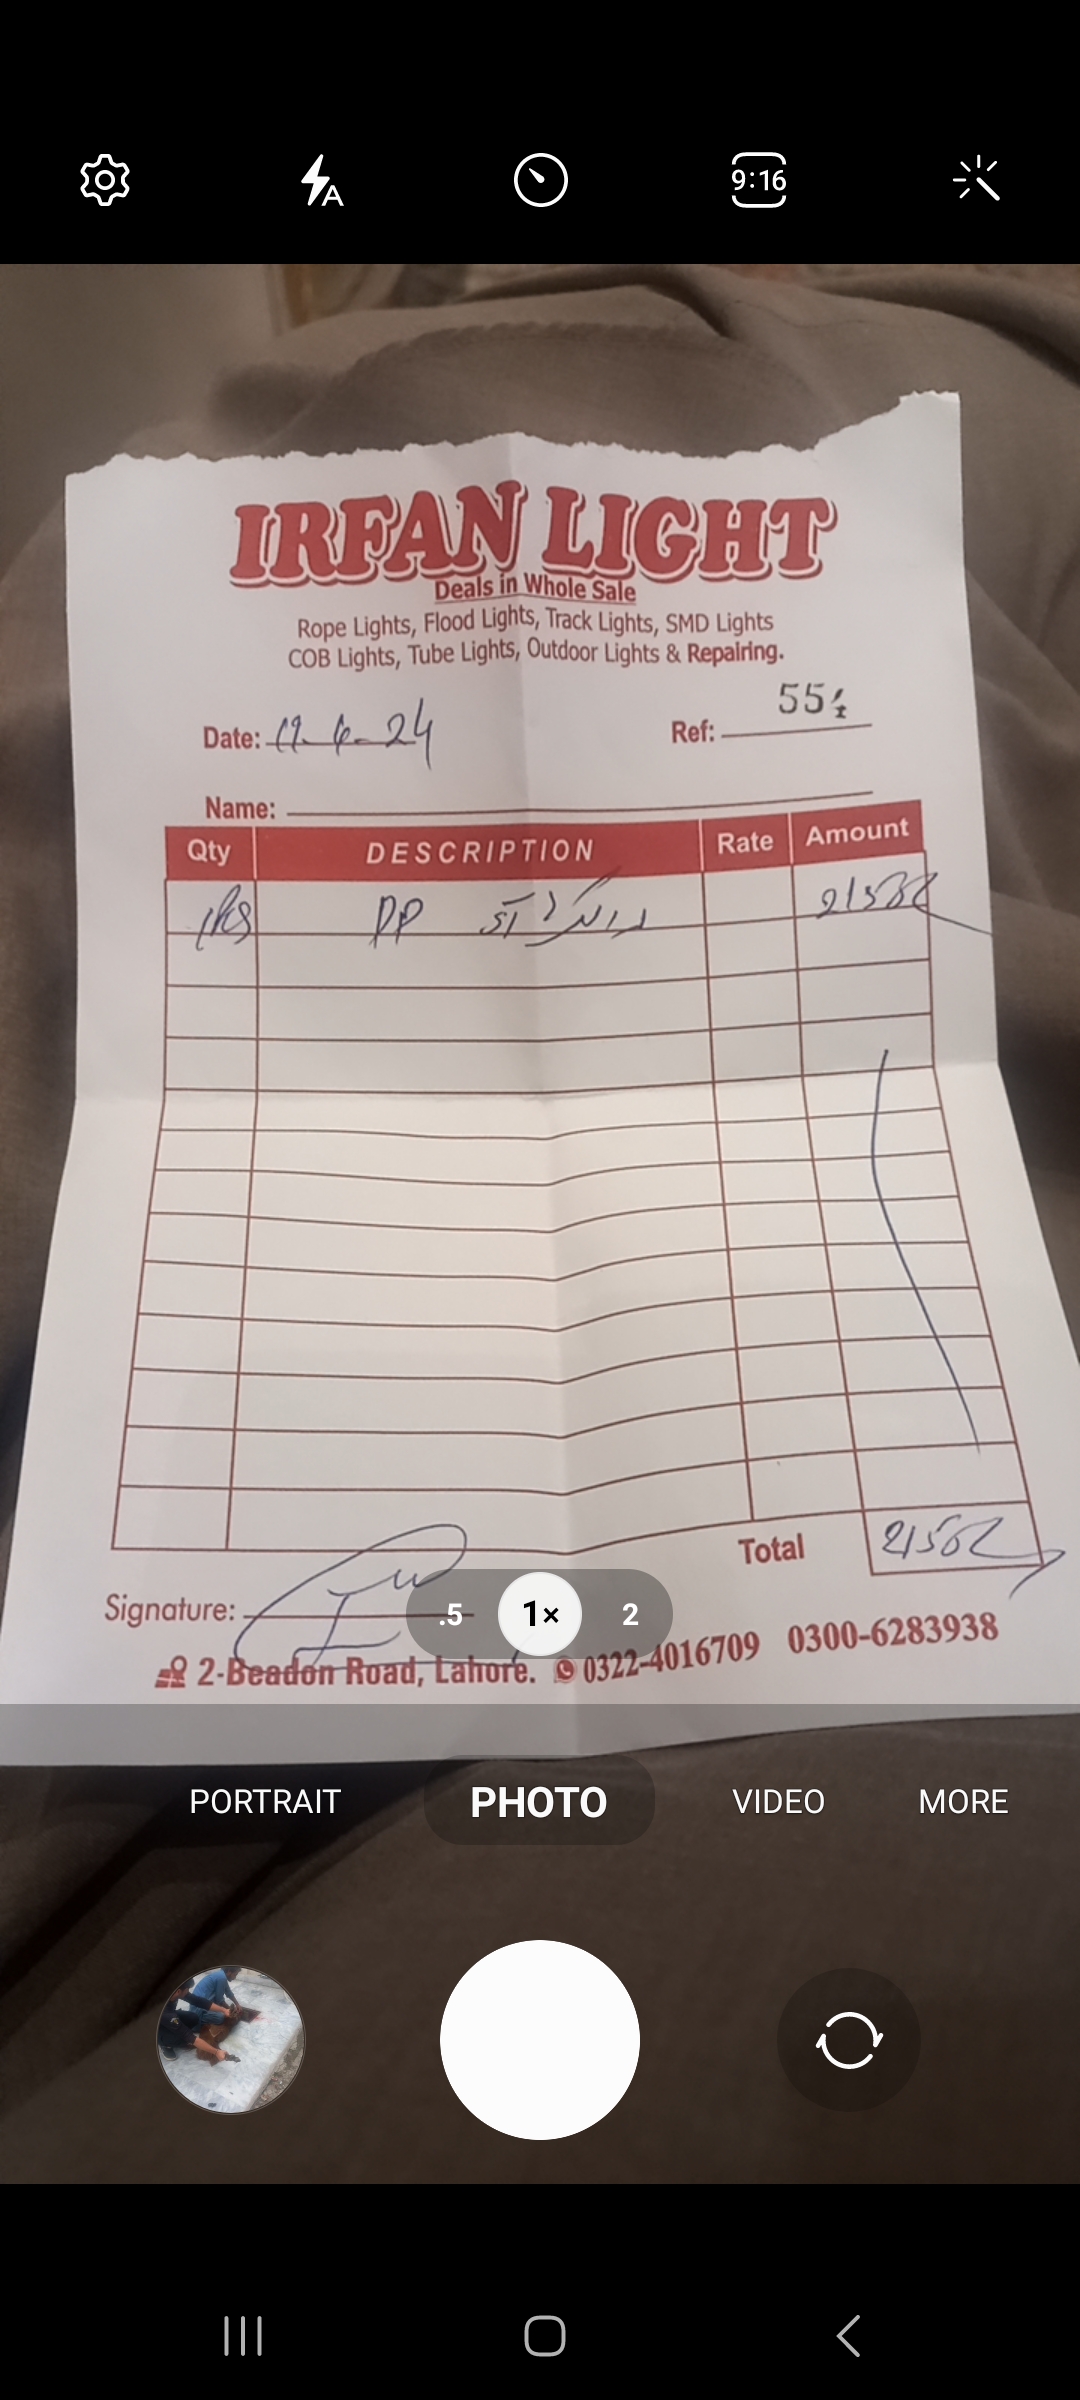 9:16
IRFAN LIGHT
Deals in Whole Sale
Rope Lights, Flood Lights, Track Lights, SMD Lights
COB Lights, Tube Lights, Outdoor Lights & Repairing.
Date: 19-6-24 Ref: 55
Name:
Qty DESCRIPTION Rate Amount
1Pcs DP
Total
Signature:
.5 1× 2
2-Beadon Road, Lahore. 0322-4016709 0300-6283938
PORTRAIT PHOTO VIDEO MORE